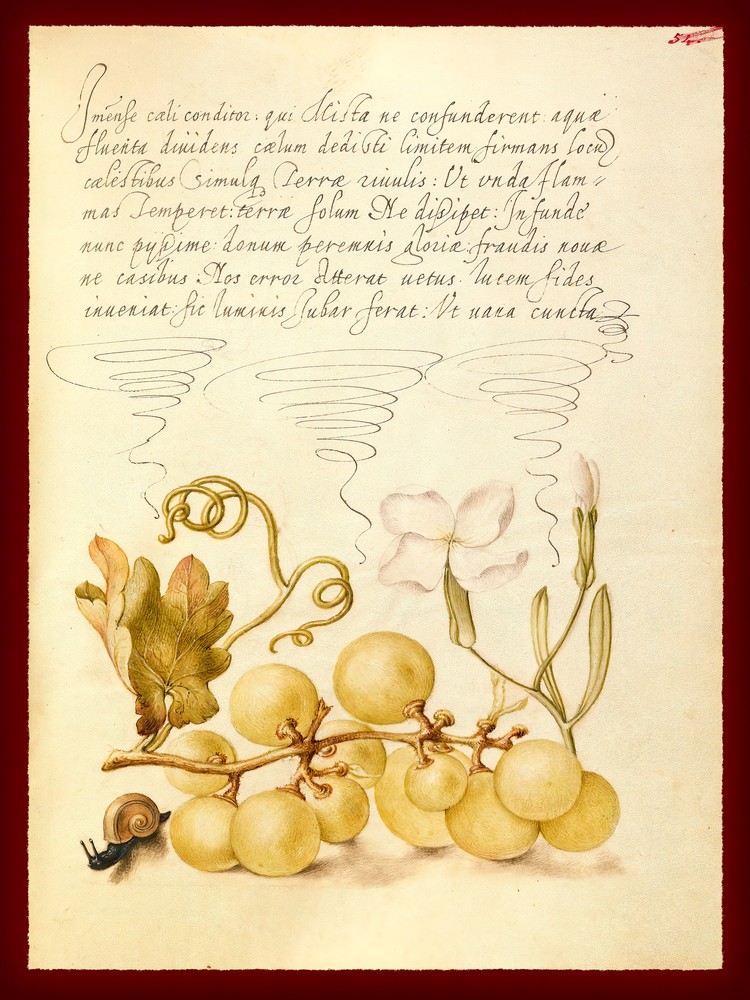 51
Imẽnse cæli conditor: qui Mista ne confunderent aquæ
fluenta diuidens cælum dedisti limitem firmans locũ
cælestibus Simulq̃ Terræ riuulis: Vt vnda flam=
mas Temperet: terræ solum Ne dissipet: Infunde
nunc pijssime donum peremnis gloriæ: fraudis nouæ
ne casibus Nos error Atterat uetus. lucem fides
inueniat: sic luminis Iubar ferat: Vt uana cuncta